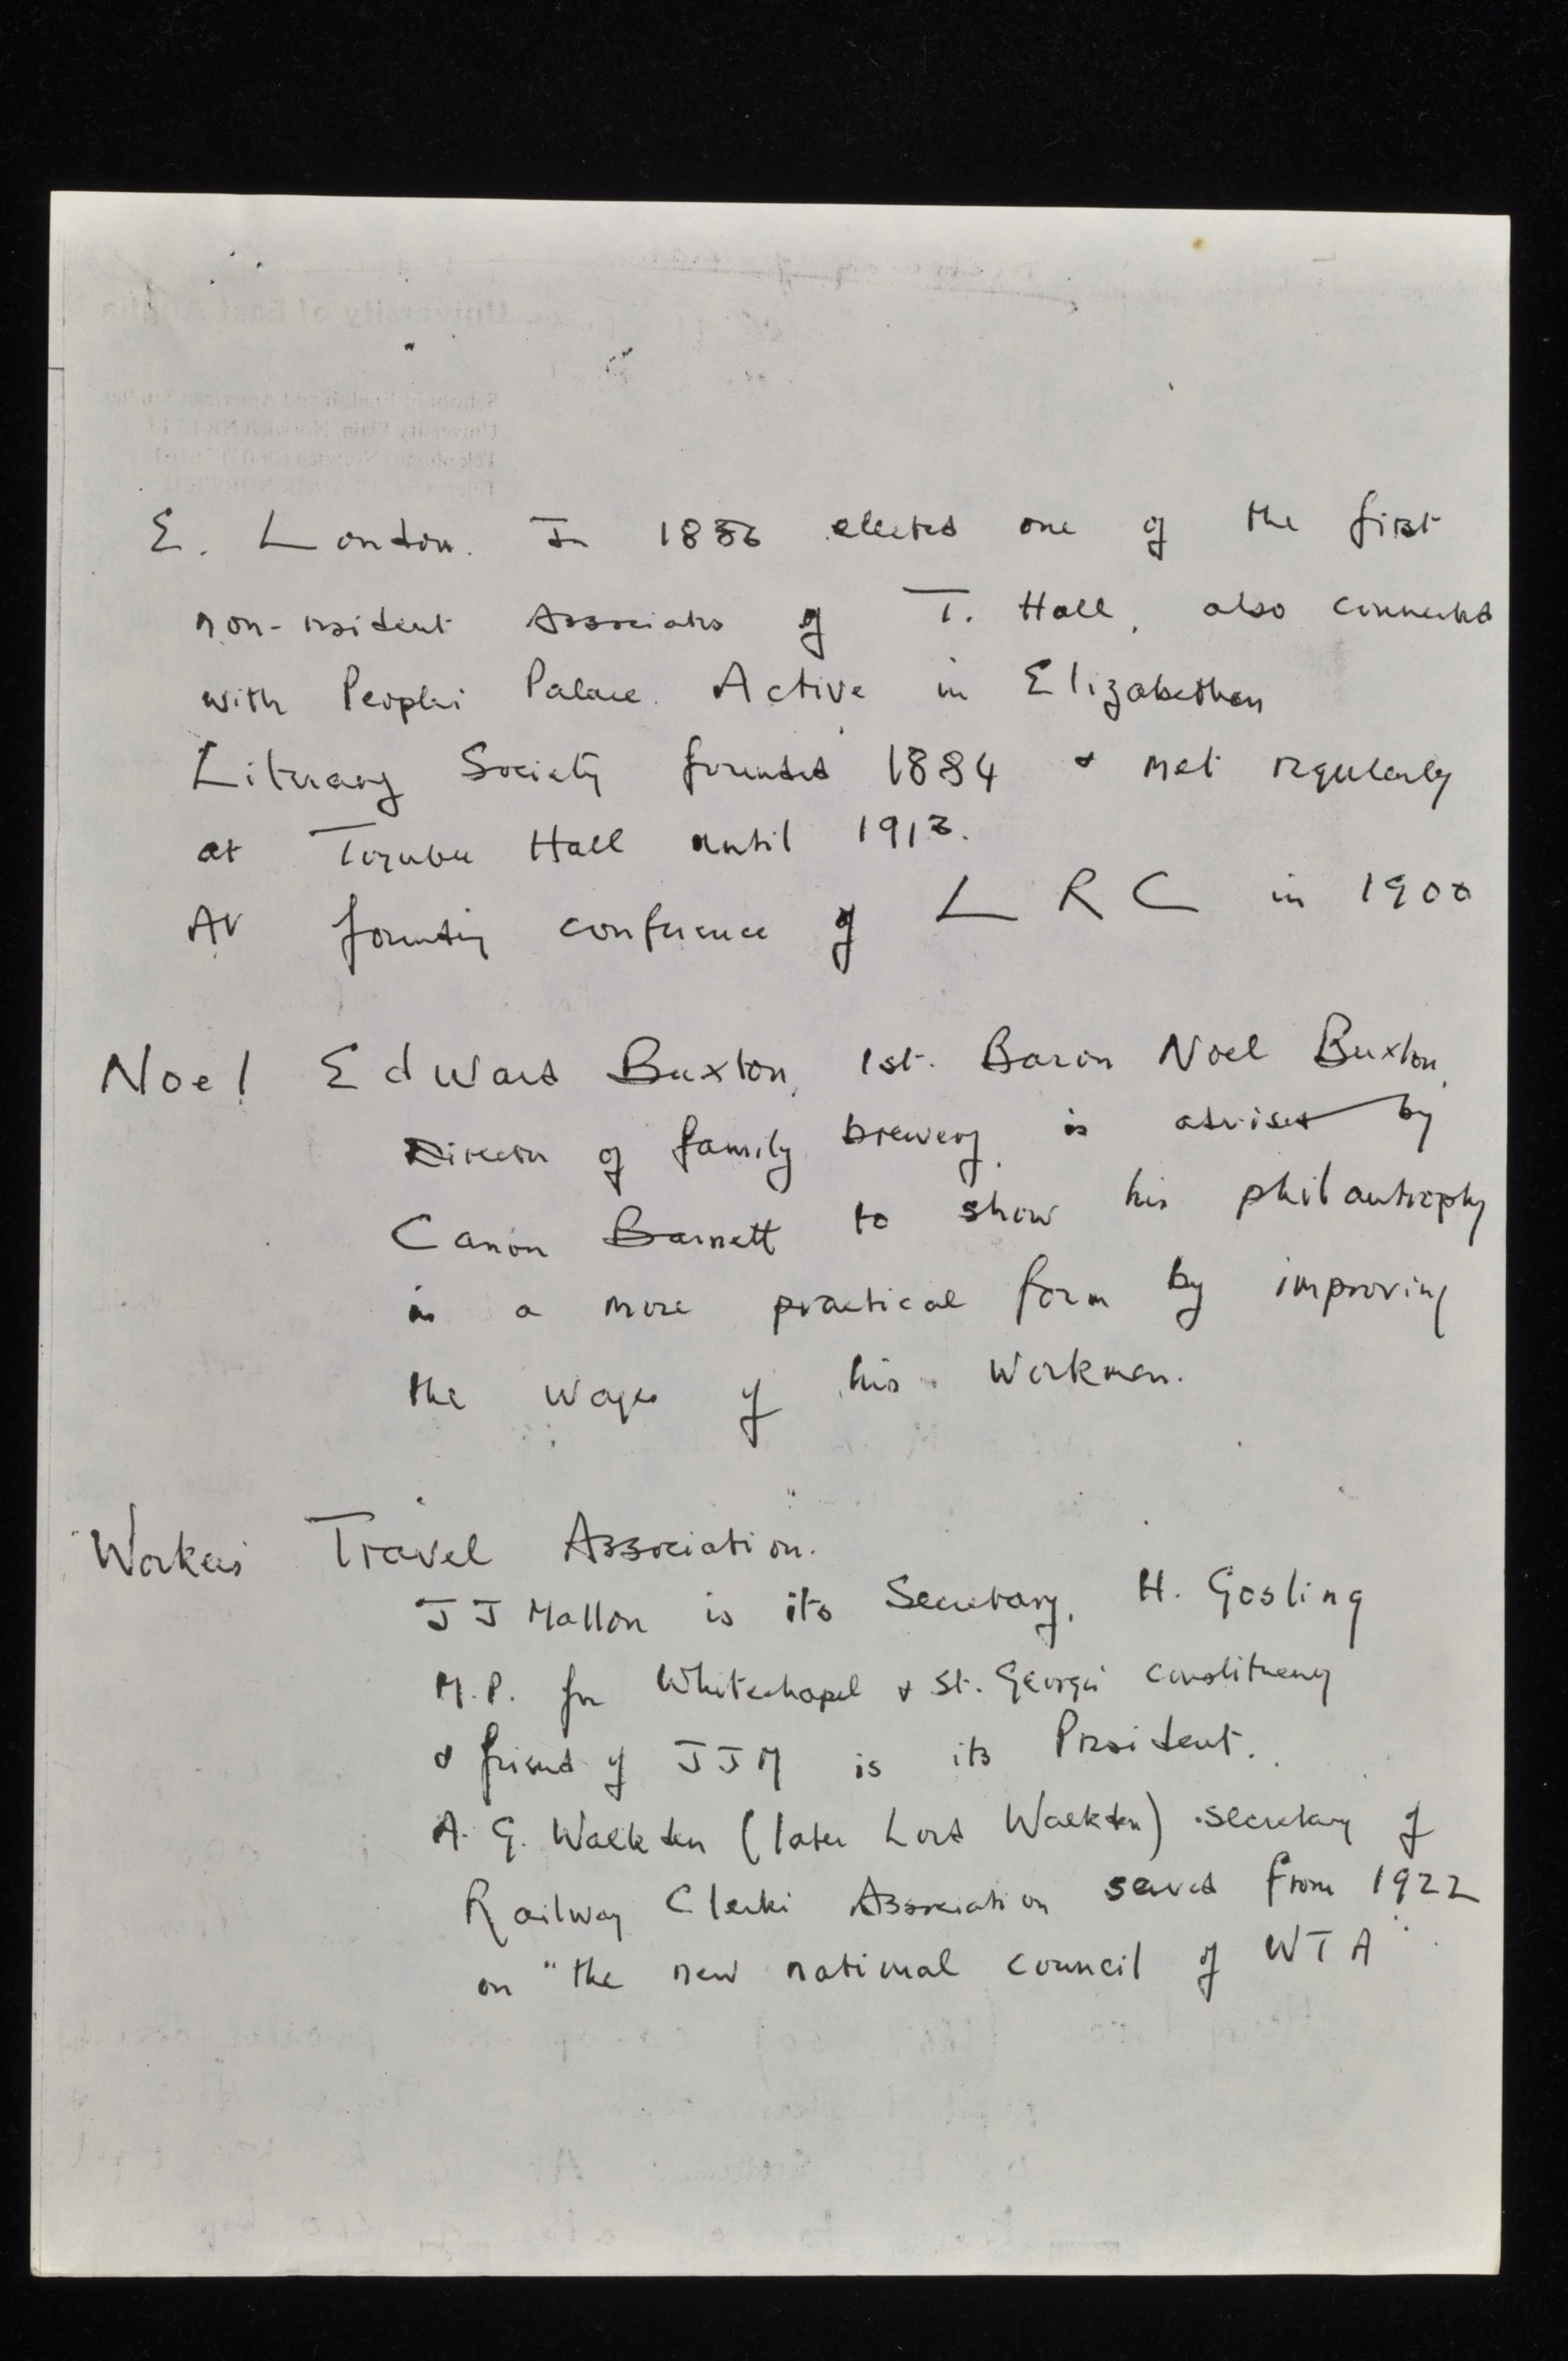 E. London. In 1886 elected one of the first
non-resident Associates of T. Hall, also connected
with Peoples' Palace. Active in Elizabethan
Literary Society founded 1884 & met regularly
at Toynbee Hall until 1913.
At founding conference of L R C in 1900
Noel Edward Buxton, 1st. Baron Noel Buxton,
Director of family brewery, is advised by
Canon Barnett to show his philantrophy
in a more practical form by improving
the wages of his workmen.
Workers' Travel Association.
J J Mallon is its Secretary, H. Gosling
M.P. for Whitechapel & St. George's constituency
& friend of JJM is its President.
A. G. Walkden (later Lord Walkden) secretary of
Railway Clerks' Association served from 1922
on "the new national council of WTA".
University of East Anglia
School of English and American Studies